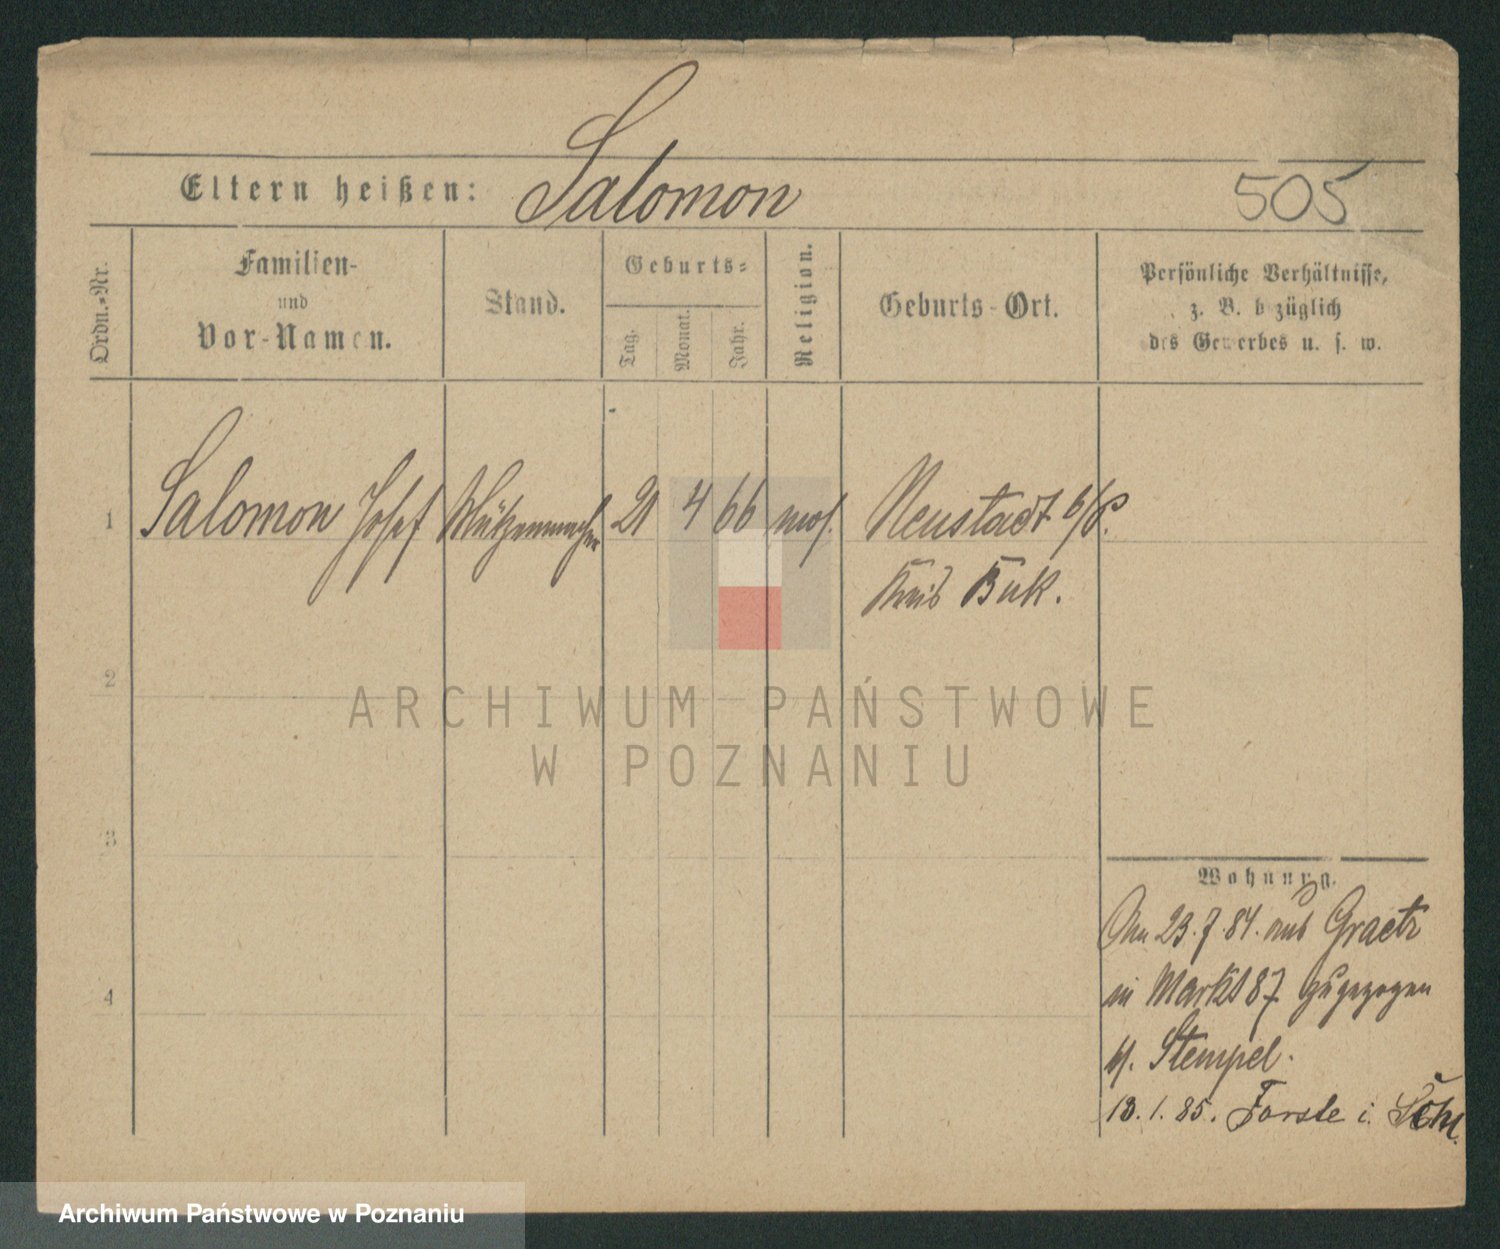 Eltern heißen: Salomon 505
Ordn.-Nr.
Familien-
und
Vor-Namen.
Stand.
Geburts-
Tag.
Monat.
Jahr.
Religion.
Geburts-Ort.
Persönliche Verhältnisse,
z. B. bezüglich
des Gewerbes u. s. w.
1 Salomon Josef Mützenmacher 21 4 66 mos. Neustadt b/P.
Kreis Buk.
2
3
4
Wohnung.
Am 23.7.84. aus Graetz
in Markt 87 zugezogen
b/. Stempel.
13.1.85. Forste i.
ARCHIWUM PAŃSTWOWE
W POZNANIU
Archiwum Państwowe w Poznaniu